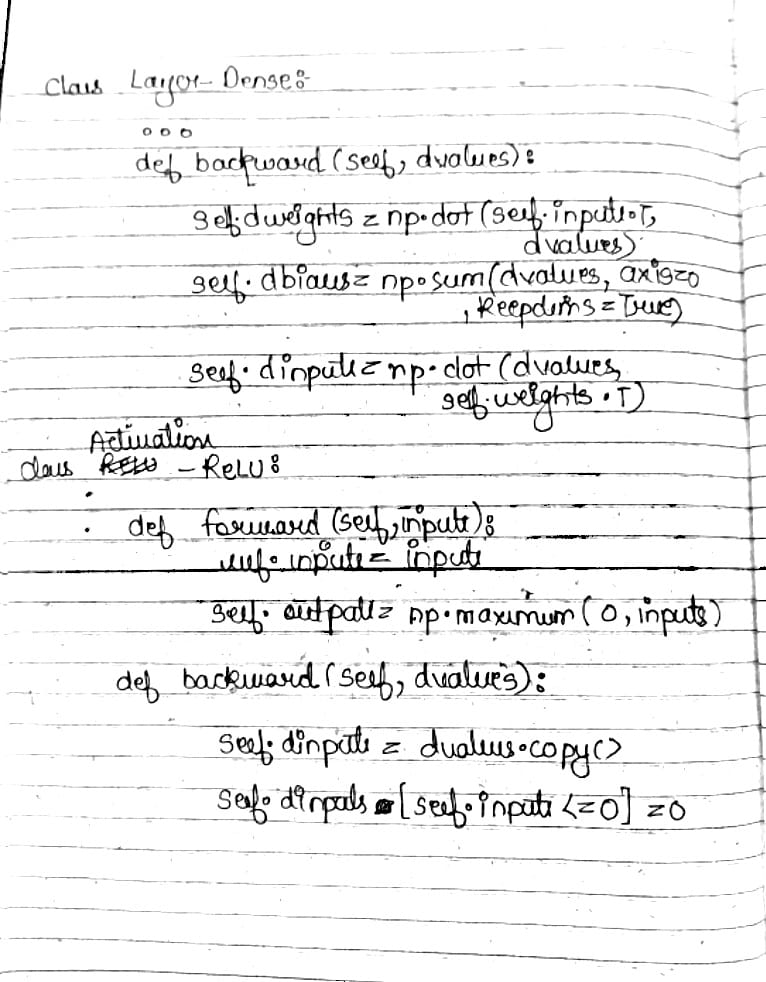 class Layer-Dense:
ooo
def backward (self, dvalues):
self.dweights = np.dot (self.inputs.T,
dvalues)
self.dbiases = np.sum(dvalues, axis=0
, keepdims = True)
self.dinputs = np.dot (dvalues,
self.weights.T)
Activation
class ReLU - ReLU:
.
. def forward (self, inputs):
self.inputs = inputs
self.output = np.maximum (0, inputs)
def backward (self, dvalues):
self.dinputs = dvalues.copy()
self.dinputs [self.inputs <=0] =0